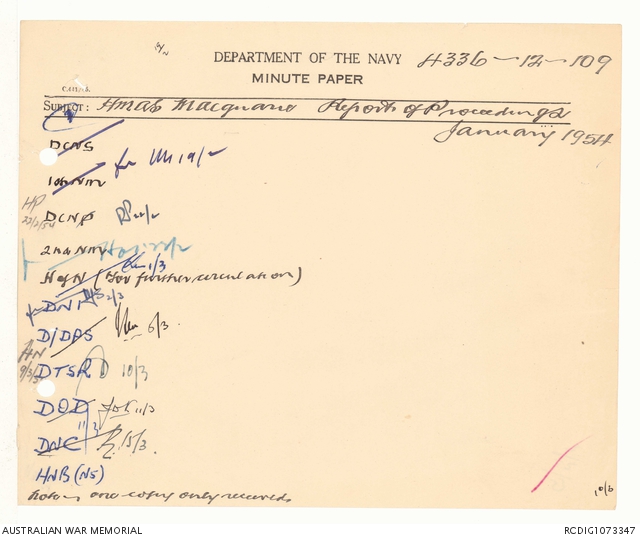 DEPARTMENT OF THE NAVY 4336-12-109
MINUTE PAPER
SUBJECT: HMAS Macquarie Reports of Proceedings
January 1954
DCNS
1st NM 19/2
HP
22/2/54
DCNP
2nd NM
H of N (For further circulation) 1/3
DNI 2/3
D/DPS 6/3
HN
9/3/54
DTSR 10/3
DOD 11/3
11/3
DNC 15/3.
HNB (NS)
Note:- one copy only received
AUSTRALIAN WAR MEMORIAL RCDIG1073347